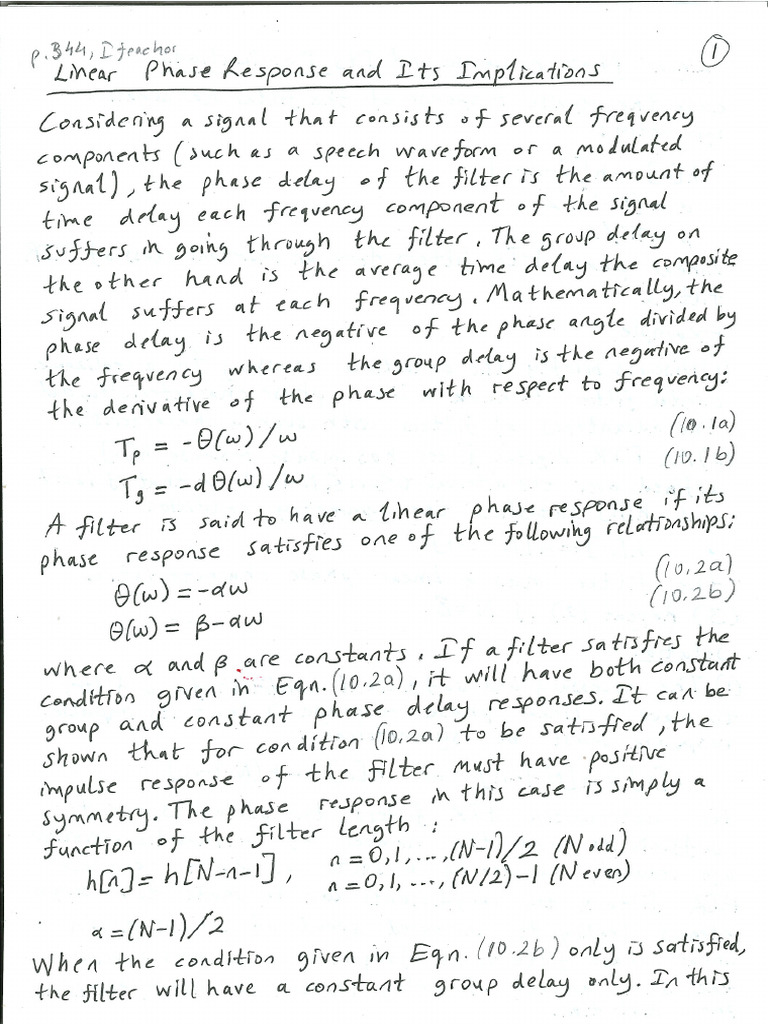 p.344, Ifeachor
1
Linear Phase Response and Its Implications
Considering a signal that consists of several frequency
components (such as a speech waveform or a modulated
signal), the phase delay of the filter is the amount of
time delay each frequency component of the signal
suffers in going through the filter. The group delay on
the other hand is the average time delay the composite
signal suffers at each frequency. Mathematically, the
phase delay is the negative of the phase angle divided by
the frequency whereas the group delay is the negative of
the derivative of the phase with respect to frequency:
Tp = -θ(ω)/ω (10.1a)
Tg = -dθ(ω)/ω (10.1b)
A filter is said to have a linear phase response if its
phase response satisfies one of the following relationships:
θ(ω) = -αω (10.2a)
θ(ω) = β-αω (10.2b)
where α and β are constants. If a filter satisfies the
condition given in Eqn. (10.2a), it will have both constant
group and constant phase delay responses. It can be
shown that for condition (10.2a) to be satisfied, the
impulse response of the filter must have positive
symmetry. The phase response in this case is simply a
function of the filter length:
h[n] = h[N-n-1], n = 0,1,...,(N-1)/2 (N odd)
n = 0,1,...,(N/2)-1 (N even)
α = (N-1)/2
When the condition given in Eqn. (10.2b) only is satisfied,
the filter will have a constant group delay only. In this